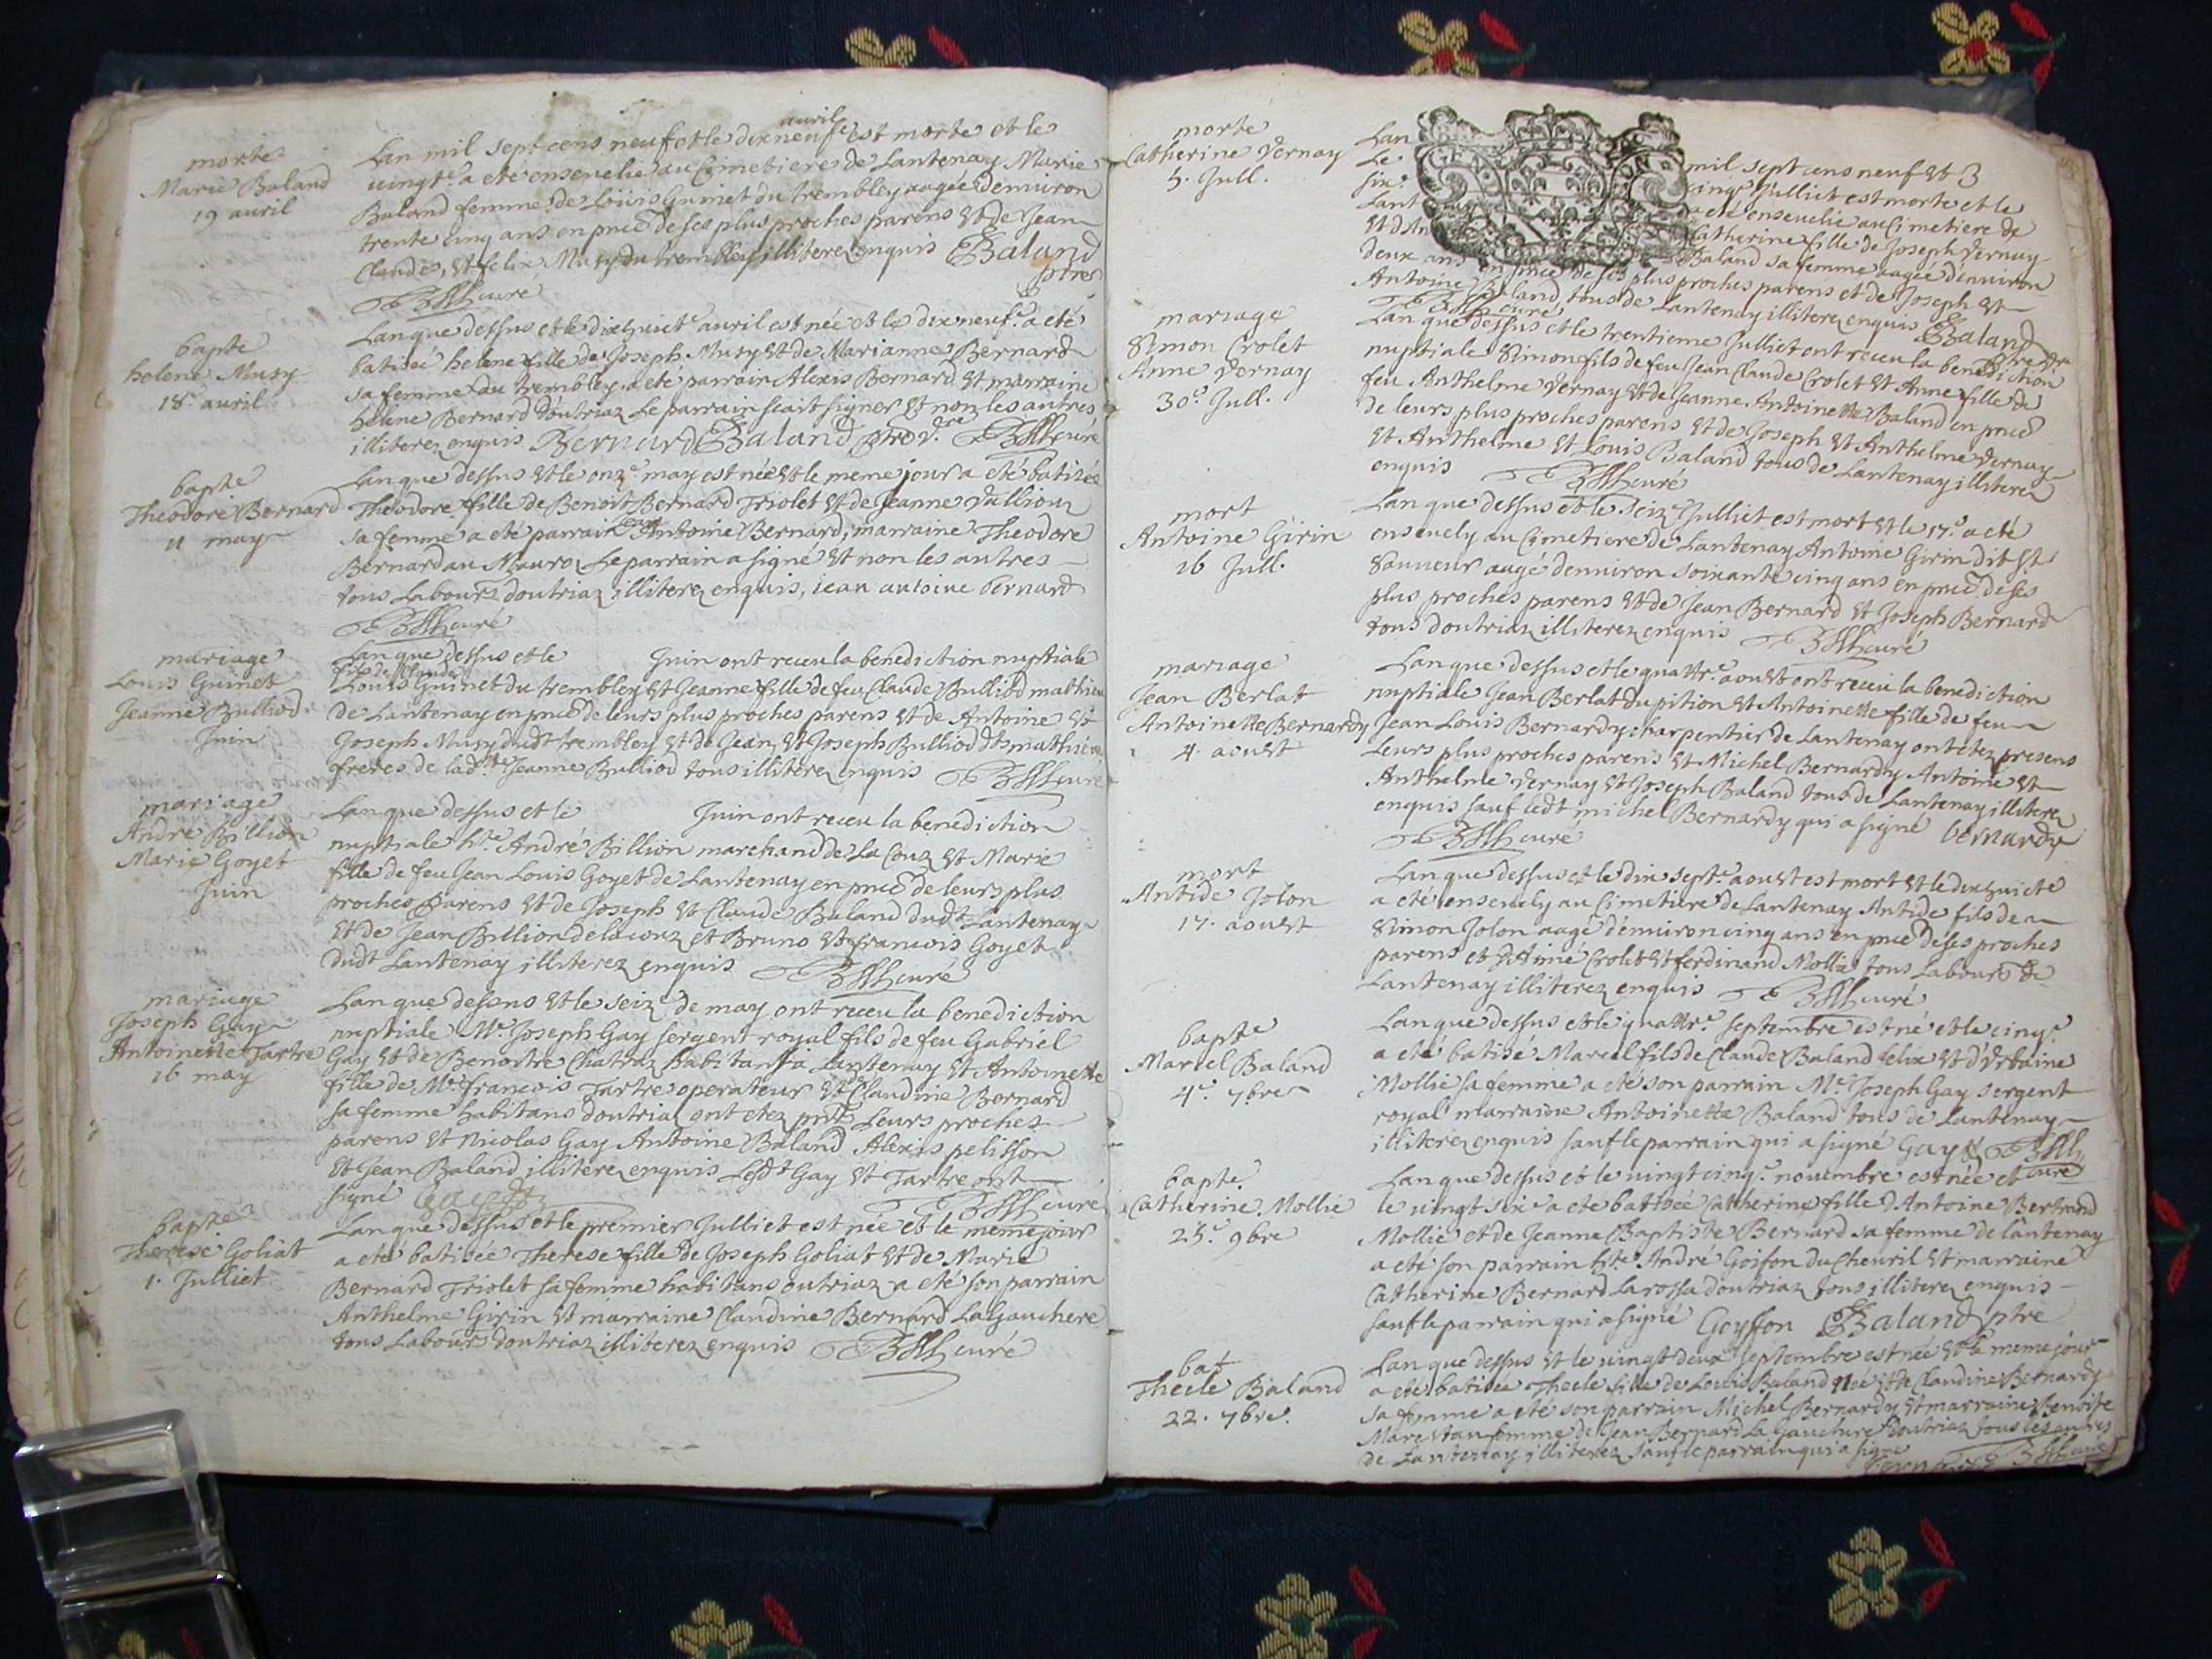 morte
Marie Baland
19 avril
Lan mil sept cens neuf et le dixneuf.e avril est morte et le
uingt.e a eté enseuelie au Cimetiere de Lantenay Marie
Baland femme de Loüis Guinet du trembley aagée denuiron
trente cinq ans en pnce de ses plus proches parens et de Jean
Claude, et felix Musy du trembley illiterez enquis Baland
ptre
curé
bapte
helene Musy
18.e auril
Lan que dessus et le dixhuict.e auril est née et le dixneuf.e a eté
batisée helene fille de Joseph Musy et de Marianne Bernard
sa femme du trembley, a eté parrain Alexis Bernard et marraine
helene Bernard doutriaz Le parrain scait signer et non les autres
illiterez enquis Bernard Baland ptre curé
bapte
Theodore Bernard
11 may
Lan que dessus et le onz.e may est née et le meme jour a eté batisée
Theodore fille de Benoit Bernard Triolet et de Jeanne Vallion
sa femme a eté parrain Jean Antoine Bernard, marraine Theodore
Bernard au Mauroz Le parrain a signé et non les autres
tous Labours doutriaz illiterez enquis, iean antoine bernard
curé
mariage
Louis Guinet
Jeanne Bulliod
Juin
Lan que dessus et le Juin ont receu la benediction nuptiale
fils de Claude
Louis Guinet du trembley et Jeanne fille de feu Claude Bulliod mathieu
de Lantenay en pnce de leurs plus proches parens et de Antoine et
Joseph Musy dudt trembley et de Jean, et Joseph Bulliod dts mathieu
freres de lad.te Jeanne Bulliod tous illiterez enquis curé
mariage
André Billion
Marie Goyet
Juin
Lan que dessus et le Juin ont receu la benediction
nuptiale h.te André Billion marchand de La Couz et Marie
fille de feu Jean Louis Goyet de Lantenay en pnce de leurs plus
proches parens et de Joseph et Claude Baland dudt Lantenay
et de Jean Billion de lacouz et Bruno et francois Goyet
dudt Lantenay illiterez enquis curé
mariage
Joseph Gay
Antoinette Tartre
16 may
Lan que dessus et le seiz.e de may ont receu la benediction
nuptiale M.e Joseph Gay sergent royal fils de feu Gabriel
Gay et de Benoitte Chatraz habitant a Lantenay et Antoinette
fille de M.e francois Tartre operateur et Claudine Bernard
sa femme habitans doutriaz ont etez pnts Leurs proches
parens et Nicolas Gay Antoine Baland Alexis pelisson
et Jean Baland illiterez enquis Lesdt Gay et Tartre ont
signé curé
bapte
Therese Goliat
1. Julliet
Lan que dessus et le premier Julliet est née et le meme jour
a eté batisée Therese fille de Joseph Goliat et de Marie
Bernard Triolet sa femme habitans outriaz a eté son parrain
Anthelme Girin et marraine Claudine Bernard LaGauchere
tous Labours doutriaz illiterez enquis curé
morte
Catherine Vernay
5. Jull.
Lan mil sept cens neuf et
Le cinq.e Julliet est morte et le
six.e a eté enseuelie au Cimetiere de
Lant Catherine fille de Joseph Vernay
et dAn Baland sa femme aagée denuiron
deux ans en pnce de ses plus proches parens et de Joseph et
Antoine Baland, tous de Lantenay illiterez enquis Baland
curé ptre
mariage
Simon Crolet
Anne Vernay
30.e Jull.
Lan que dessus et le trentieme Julliet ont receu la benediction
nuptiale Simon fils de feu Jean Claude Crolet et Anne fille de
feu Anthelme Vernay et de Jeanne Antoinette Baland en pnce
de leurs plus proches parens et de Joseph et Anthelme Vernay
et Anthelme et Louis Baland tous de Lantenay illiterez
enquis curé
mort
Antoine Girin
16 Jull.
Lan que dessus et le seiz.e Julliet est mort et le 17.e a eté
enseuely au Cimetiere de Lantenay Antoine Girin dit St
Sauueur aagé denuiron soixante cinq ans en pnce de ses
plus proches parens et de Jean Bernard et Joseph Bernard
tous doutriaz illiterez enquis curé
mariage
Jean Berlat
Antoinette Bernardy
4. aoust
Lan que dessus et le quattr.e aoust ont receu la benediction
nuptiale Jean Berlat du pition et Antoinette fille de feu
Jean Louis Bernardy charpentier de Lantenay ont etez presens
Leurs plus proches parens et Michel Bernardy Antoine et
Anthelme Vernay et Joseph Baland tous de Lantenay illiterez
enquis sauf ledt michel Bernardy qui a signé bernardy
curé
mort
Antide Jolon
17. aoust
Lan que dessus et le dix sept.e aoust est mort et le dixhuicte
a eté enseuely au Cimetiere de Lantenay Antide fils de
Simon Jolon aagé denuiron cinq ans en pnce de ses proches
parens et dAimé Crolet et ferdinand Mollie tous Labours de
Lantenay illiterez enquis curé
bapte
Marcel Baland
4.e 7bre
Lan que dessus et le quattr.e septembre est né et le cinq.e
a eté batisé Marcel fils de Claude Baland felix et dUrbaine
Mollie sa femme a eté son parrain M.e Joseph Gay sergent
royal marraine Antoinette Baland tous de Lantenay
illiterez enquis sauf le parrain qui a signé Gay
curé
bapte
Catherine Mollie
25.e 9bre
Lan que dessus et le uingt cinq.e nouembre est née et
le uingt six.e a ete batisée Catherine fille dAntoine Bertrand
Mollie et de Jeanne Baptiste Bernard sa femme de lantenay
a eté son parrain h.te André Goifon du Cheuril et marraine
Catherine Bernard Larossa doutriaz tous illiterez enquis
sauf le parrain qui a signé Goyffon Baland ptre
bat
Thecle Baland
22. 7bre.
Lan que dessus et le uingt deux septembre est née et le meme jour
a eté batisée Thecle fille de Louis Baland et de Claudine Bernardy
sa femme a eté son parrain Michel Bernardy et marraine Benoite
femme de Jean Bernard La Gauchere doutriaz tous les autres
de Lantenay illiterez sauf le parrain qui a signé
curé